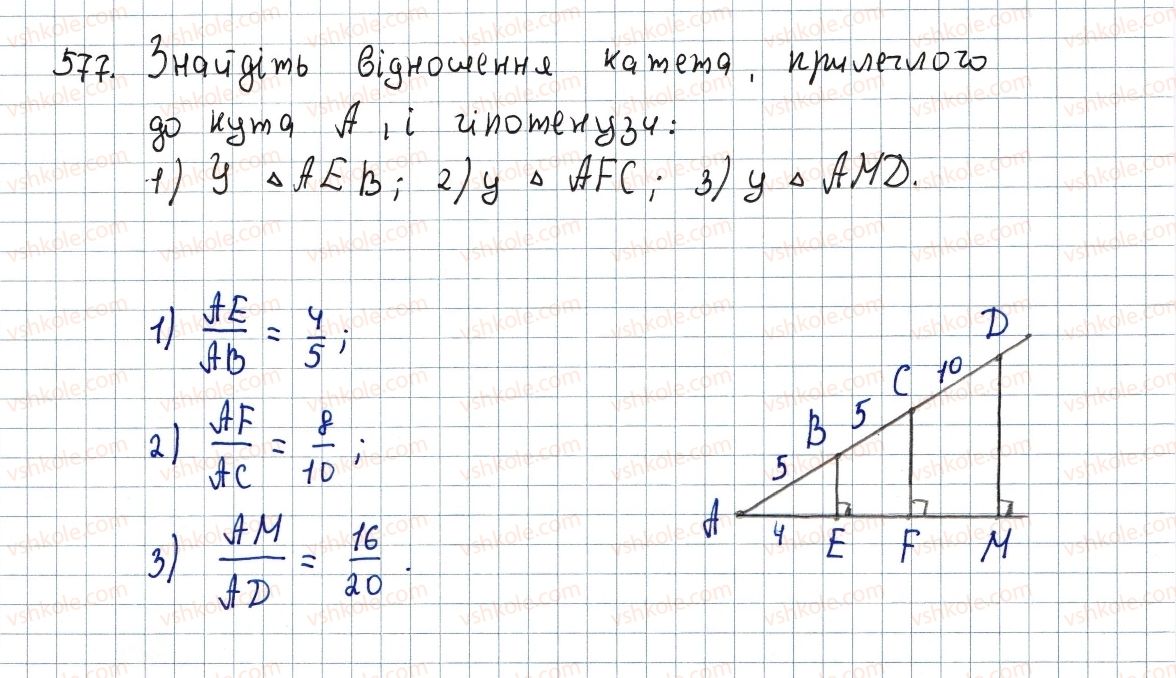 577. Знайдіть відношення катета, прилеглого
до кута A, і гіпотенузи:
1) У △ AEB; 2) у △ AFC; 3) у △ AMD.
1) AE/AB = 4/5;
2) AF/AC = 8/10;
3) AM/AD = 16/20.
D
10
C
5
B
5
A
4
E
F
M
vshkole.com